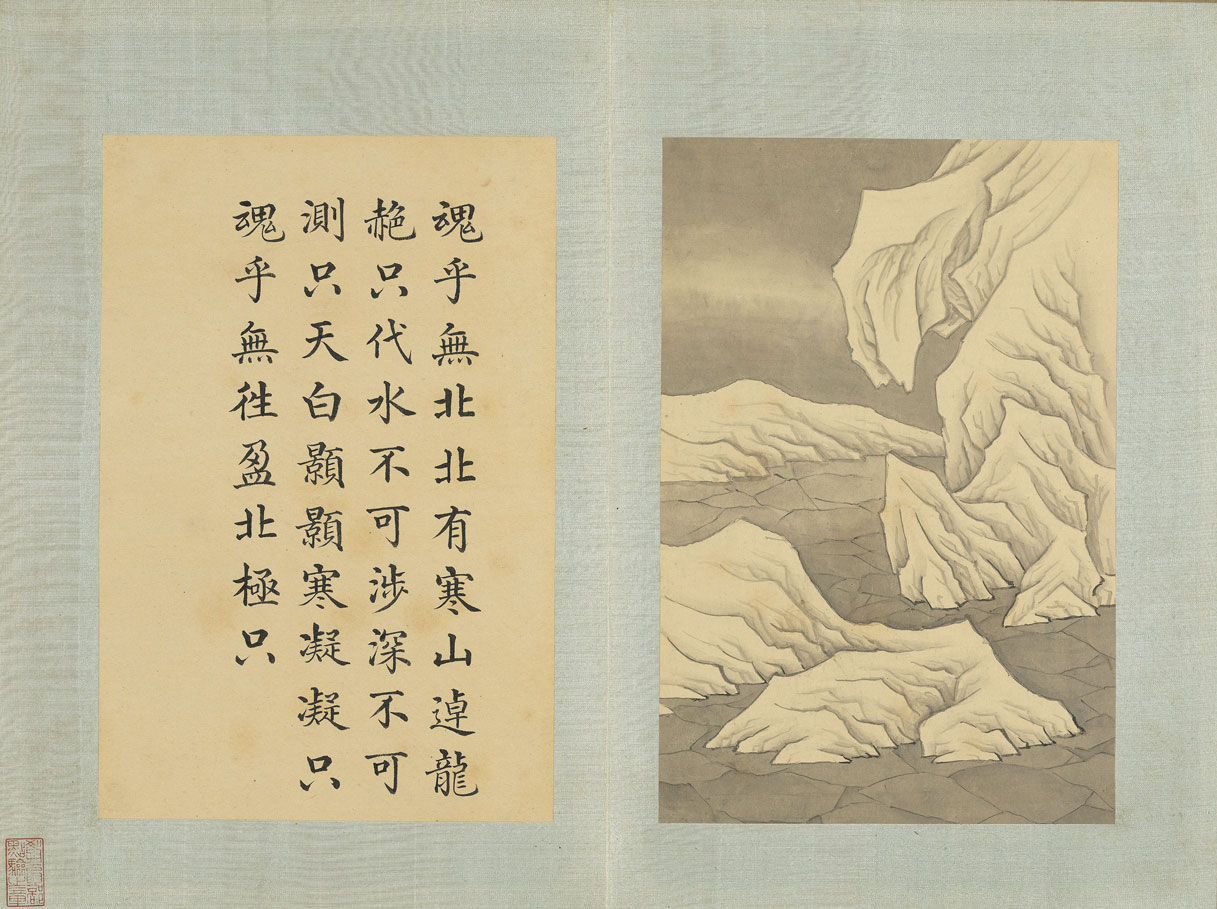 魂乎無北北有寒山逴龍
赩只代水不可涉深不可
測只天白顥顥寒凝凝只
魂乎無徃盈北極只
教育部
點驗之章